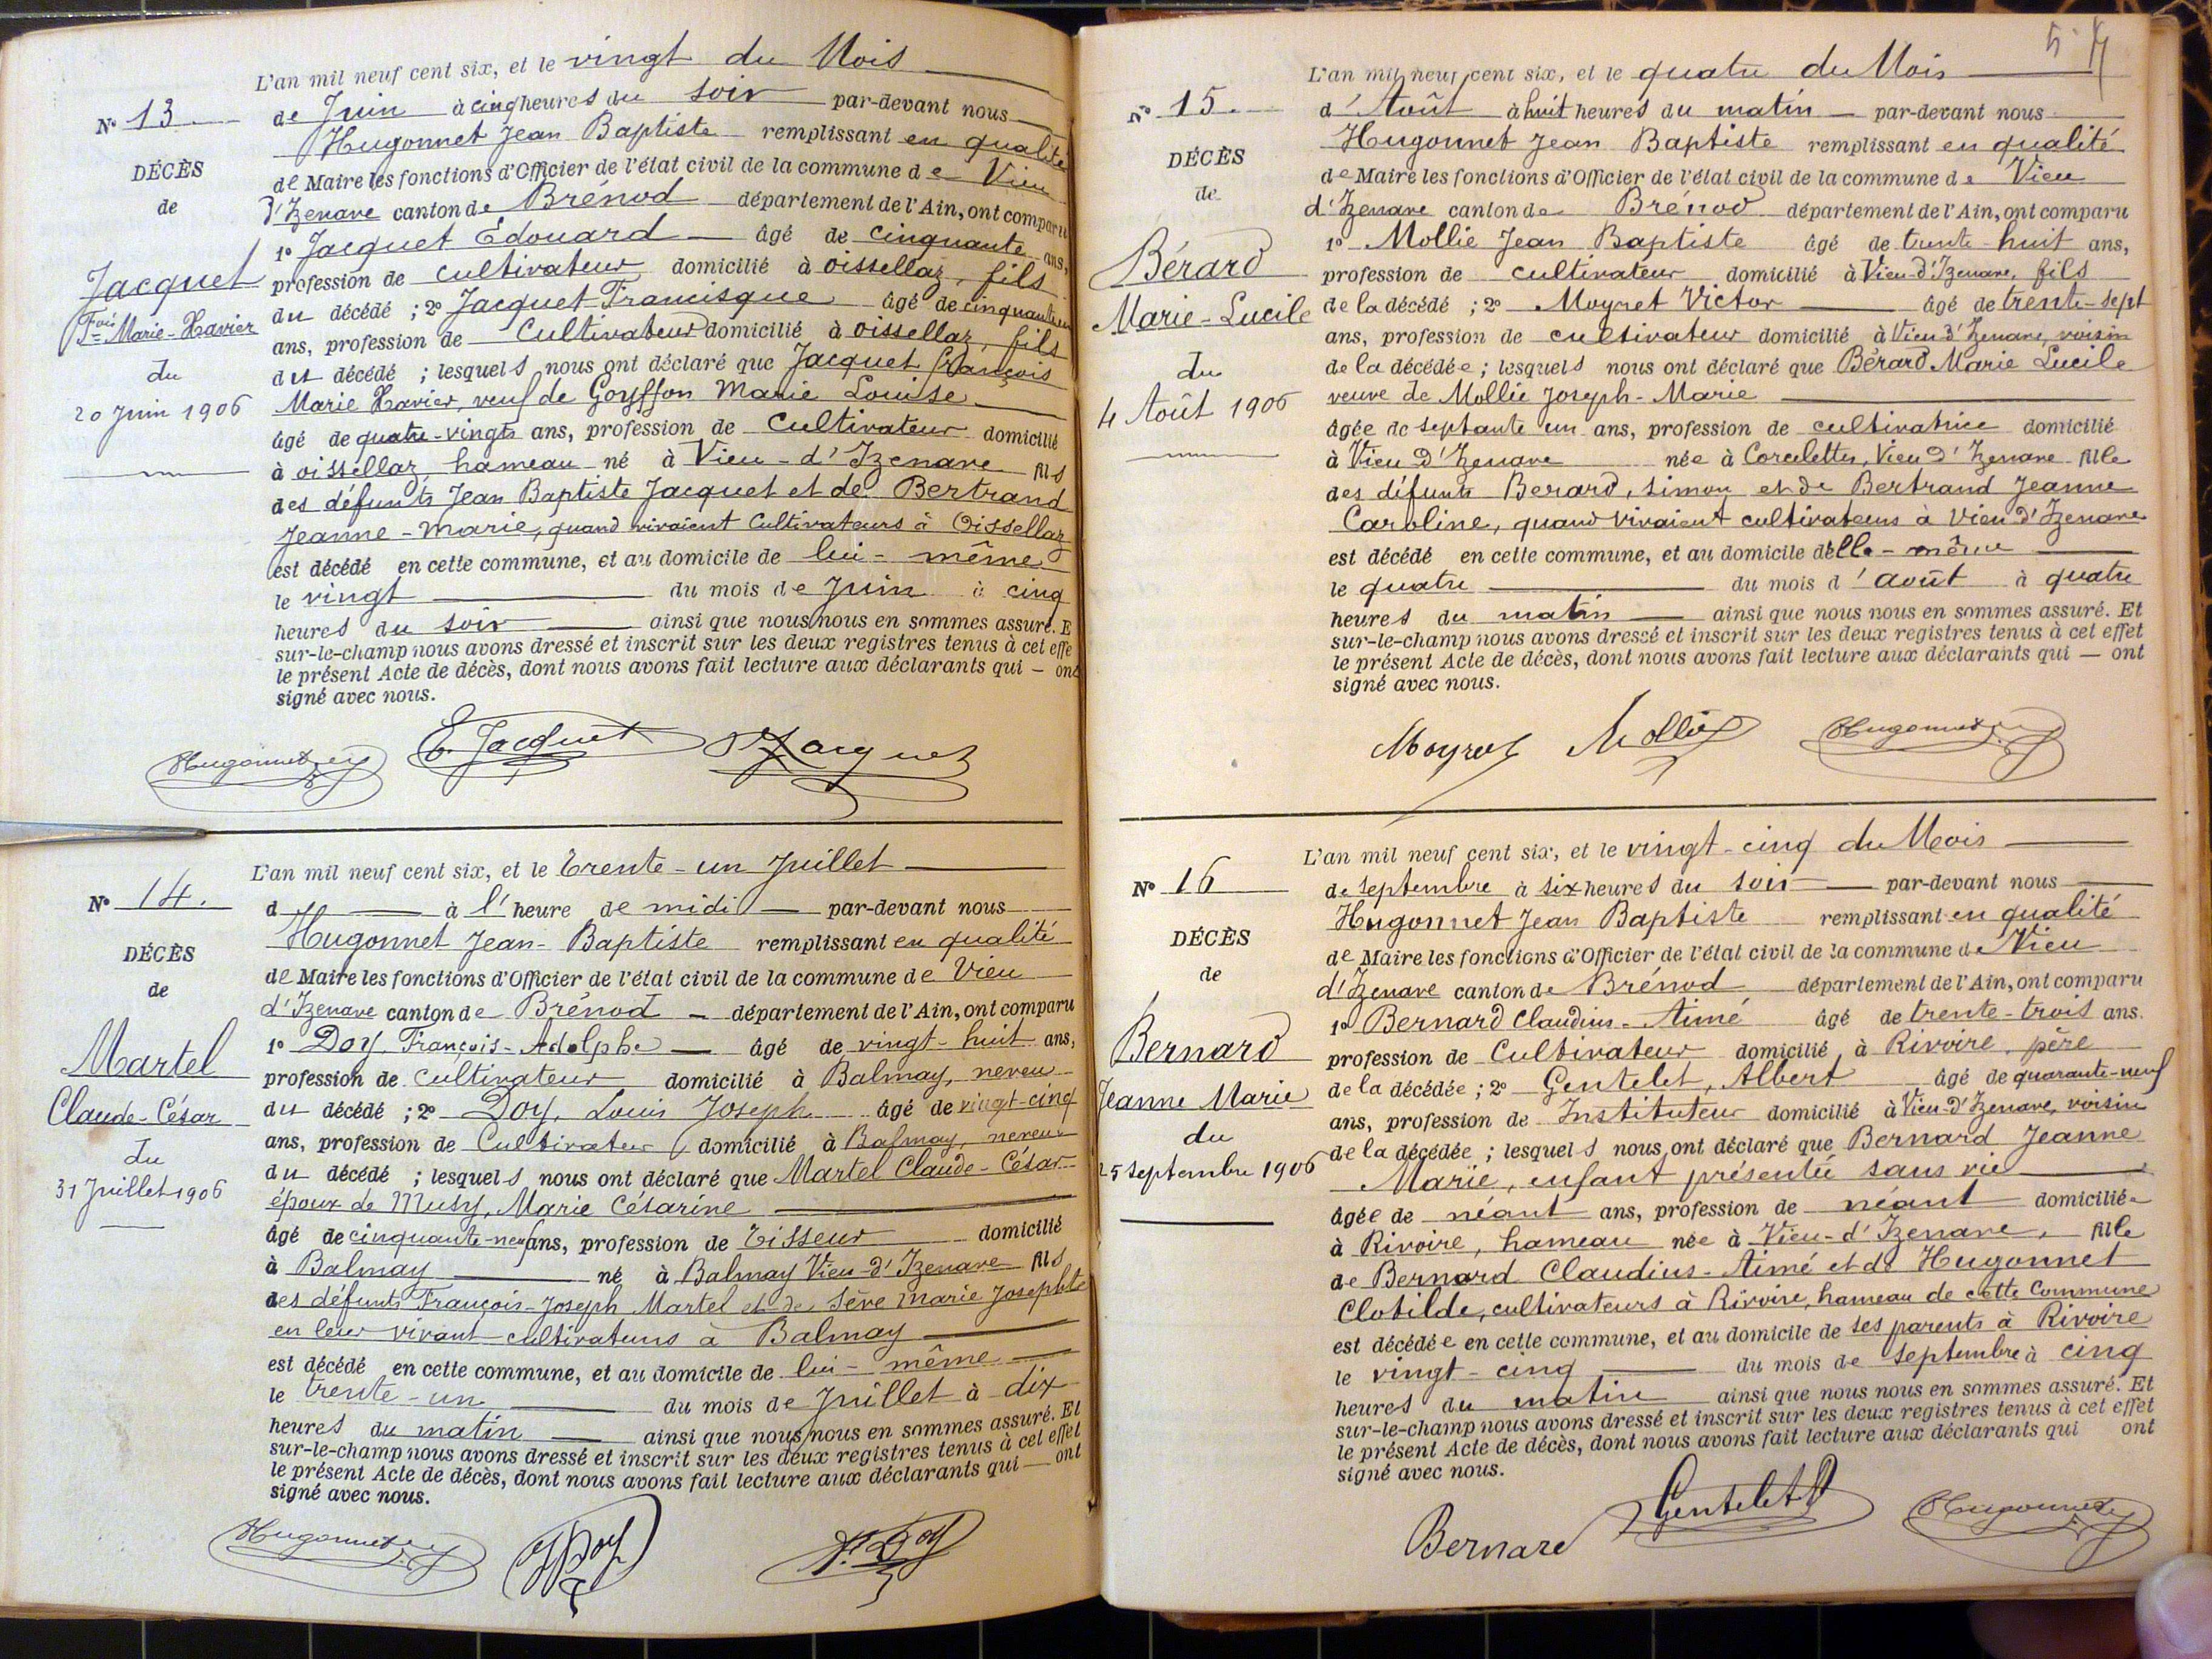 L'an mil neuf cent six, et le vingt du Mois
Nº 13
de Juin à cinq heures du soir par-devant nous
Hugonnet Jean Baptiste remplissant en qualité
DÉCÈS
de Maire les fonctions d'Officier de l'état civil de la commune de Vieu
de
d'Izenave canton de Brénod département de l'Ain, ont comparu
1º Jacquet Edouard âgé de cinquante ans,
Jacquet
profession de cultivateur domicilié à oissellaz, fils
Fois Marie-Xavier
du décédé ; 2º Jacquet Francisque âgé de
ans, profession de Cultivateur domicilié à oissellaz, fils
du
du décédé ; lesquels nous ont déclaré que Jacquet François
20 Juin 1906
Marie Xavier, veuf de Goyffon Marie Louise
âgé de quatre-vingts ans, profession de Cultivateur domicilié
à oissellaz, hameau né à Vieu-d'Izenave fils
des défunts Jean Baptiste Jacquet et de Bertrand
Jeanne-Marie, quand vivaient Cultivateurs à Oissellaz
est décédé en cette commune, et au domicile de lui-même
le vingt du mois de Juin à cinq
heures du soir ainsi que nous nous en sommes assuré. E
sur-le-champ nous avons dressé et inscrit sur les deux registres tenus à cet effe
le présent Acte de décès, dont nous avons fait lecture aux déclarants qui — ont
signé avec nous.
Hugonnet E. Jacquet Jacquet
L'an mil neuf cent six, et le trente-un Juillet
Nº 14.
d à l'heure de midi par-devant nous
Hugonnet Jean-Baptiste remplissant en qualité
DÉCÈS
de Maire les fonctions d'Officier de l'état civil de la commune de Vieu
de
d'Izenave canton de Brénod département de l'Ain, ont comparu
1º Doy, François-Adolphe âgé de vingt-huit ans,
Martel
profession de cultivateur domicilié à Balmay, neveu
Claude-César
du décédé ; 2º Doy, Louis Joseph âgé de vingt-cinq
ans, profession de Cultivateur domicilié à Balmay, neveu
du
du décédé ; lesquels nous ont déclaré que Martel Claude-César
31 Juillet 1906
époux de Musy, Marie Césarine
âgé de cinquante-neuf ans, profession de Tisseur domicilié
à Balmay né à Balmay Vieu-d'Izenave fils
des défunts François-Joseph Martel et de Sève Marie Josephte
en leur vivant cultivateurs à Balmay
est décédé en cette commune, et au domicile de lui-même
le trente-un du mois de Juillet à dix
heures du matin ainsi que nous nous en sommes assuré. Et
sur-le-champ nous avons dressé et inscrit sur les deux registres tenus à cet effet
le présent Acte de décès, dont nous avons fait lecture aux déclarants qui — ont
signé avec nous.
Hugonnet Doy Doy
5
L'an mil neuf cent six, et le quatre du Mois
Nº 15.
d'Août à huit heures du matin — par-devant nous
Hugonnet Jean Baptiste remplissant en qualité
DÉCÈS
de Maire les fonctions d'Officier de l'état civil de la commune de Vieu
de
d'Izenave canton de Brénod département de l'Ain, ont comparu
1º Mollie Jean Baptiste âgé de trente-huit ans,
Bérard
profession de cultivateur domicilié à Vieu-d'Izenave, fils
Marie-Lucile
de la décédé ; 2º Moyret Victor âgé de trente-sept
ans, profession de cultivateur domicilié à Vieu d'Izenave, voisin
du
de la décédée ; lesquels nous ont déclaré que Bérard Marie Lucile
4 Août 1906
veuve de Mollie Joseph-Marie
âgée de septante un ans, profession de cultivatrice domicilié
à Vieu d'Izenave née à Corcelettes, Vieu d'Izenave fille
des défunts Berard, Simon et de Bertrand Jeanne
Caroline, quand vivaient cultivateurs à Vieu d'Izenave
est décédé en cette commune, et au domicile d'elle-même
le quatre du mois d'août à quatre
heures du matin ainsi que nous nous en sommes assuré. Et
sur-le-champ nous avons dressé et inscrit sur les deux registres tenus à cet effet
le présent Acte de décès, dont nous avons fait lecture aux déclarants qui — ont
signé avec nous.
Moyret Mollie Hugonnet
L'an mil neuf cent six, et le vingt-cinq du Mois
Nº 16
de septembre à six heures du soir par-devant nous
Hugonnet Jean Baptiste remplissant en qualité
DÉCÈS
de Maire les fonctions d'Officier de l'état civil de la commune de Vieu
de
d'Izenave canton de Brénod département de l'Ain, ont comparu
1º Bernard Claudius-Aimé âgé de trente-trois ans.
Bernard
profession de Cultivateur domicilié à Rivoire, père
Jeanne Marie
de la décédée ; 2º Gentelet, Albert âgé de quarante-neuf
ans, profession de Instituteur domicilié à Vieu-d'Izenave, voisin
du
de la décédée ; lesquels nous ont déclaré que Bernard Jeanne
25 septembre 1906
Marie, enfant présentée sans vie
âgée de néant ans, profession de néant domiciliée
à Rivoire, hameau née à Vieu-d'Izenave, fille
de Bernard Claudius-Aimé et de Hugonnet
Clotilde, cultivateurs à Rivoire, hameau de cette Commune
est décédée en cette commune, et au domicile de ses parents à Rivoire
le vingt-cinq du mois de septembre à cinq
heures du matin ainsi que nous nous en sommes assuré. Et
sur-le-champ nous avons dressé et inscrit sur les deux registres tenus à cet effet
le présent Acte de décès, dont nous avons fait lecture aux déclarants qui ont
signé avec nous.
Bernard Gentelet Hugonnet